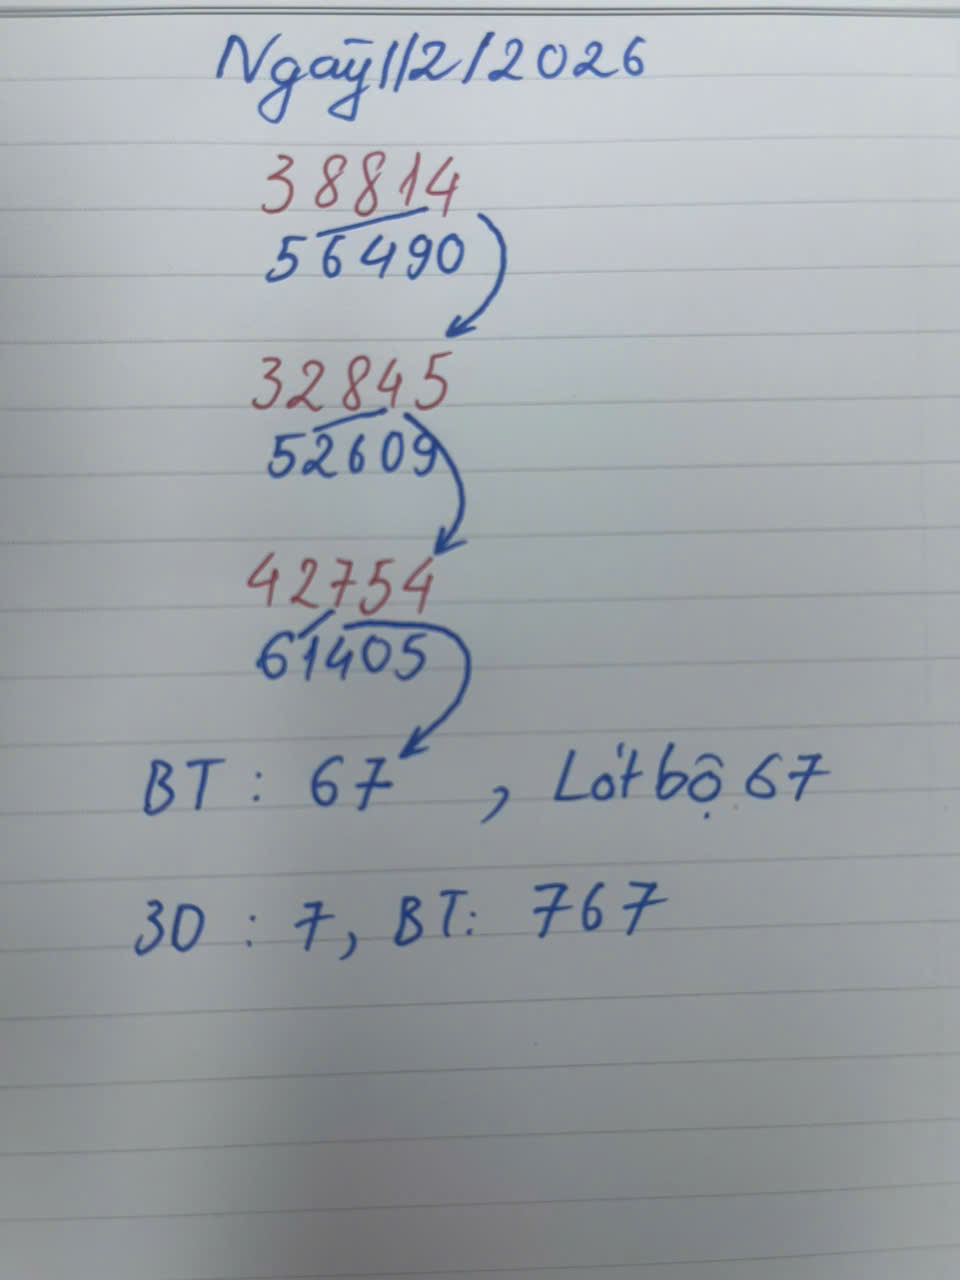 Ngày 1/2/2026
38814
56490
32845
52609
42754
61405
BT : 67 , Lót bộ 67
30 : 7, BT: 767